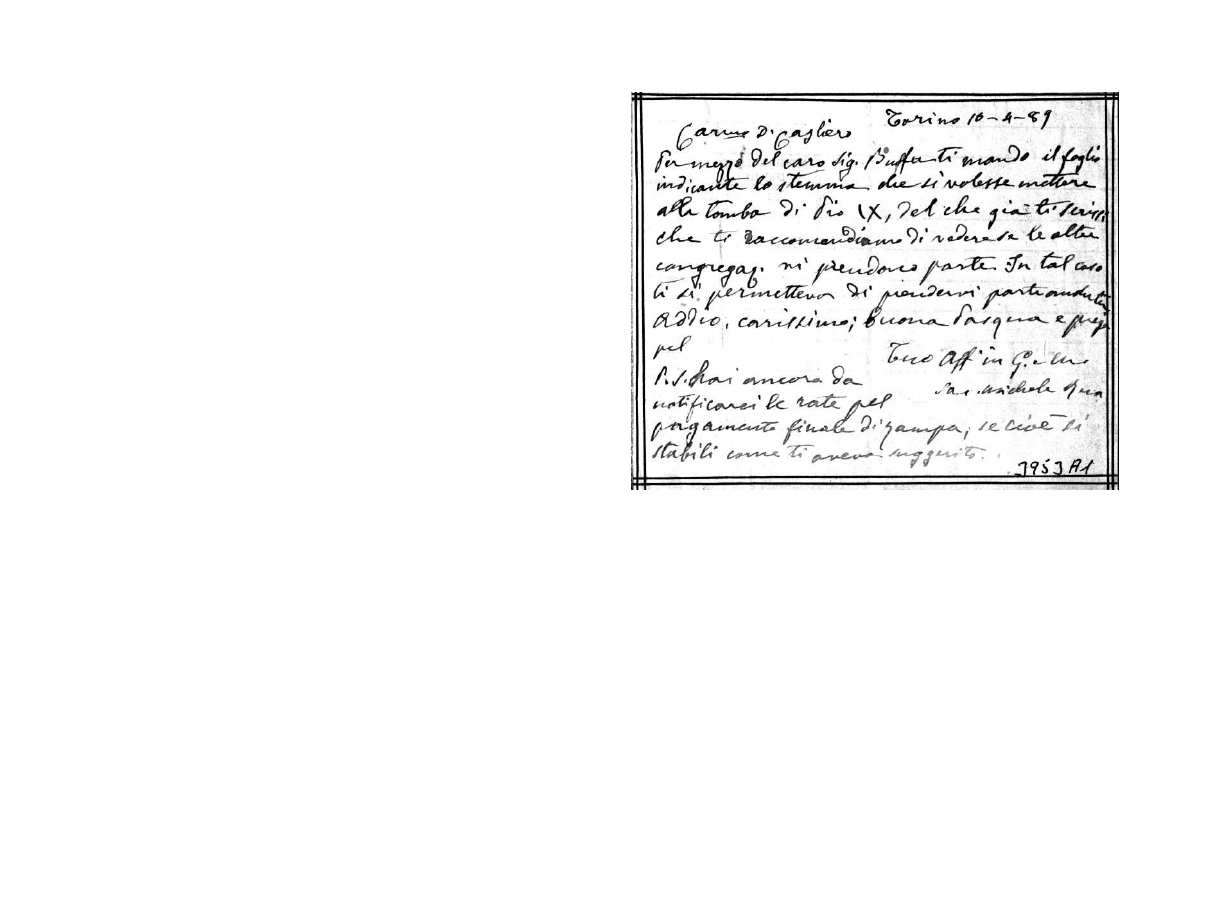 Torino 10-4-89
Carme D. Cagliero
Per mezzo del caro Sig. Buffa ti mando il foglio
indicante lo stemma che si volesse mettere
alla tomba di Pio IX, del che già ti scrissi
che ti raccomandiamo di vedere se le altre
congregaz. ni prendono parte. In tal caso
ti si permetteva di prendervi parte anche tu
Addio, carissimo; buona Pasqua e prega
pel
Tuo Aff in G. e M.
Sac. Michele Rua
P.S. hai ancora da
notificarci le rate pel
pagamento finale di Zampa, se cioè si
stabilì come ti aveva suggerito.
3953 A1